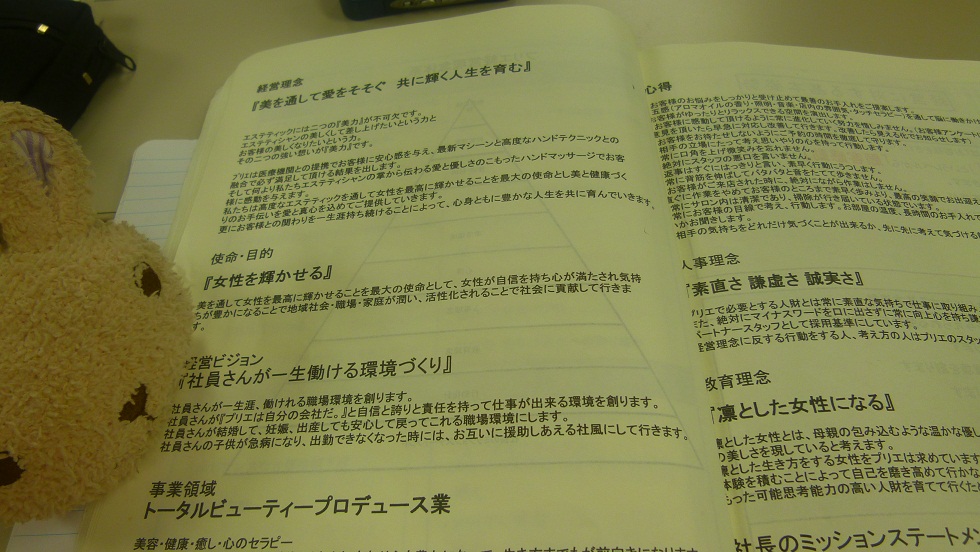 経営理念
『美を通して愛をそそぐ 共に輝く人生を育む』
エステティックには二つの『美力』が不可欠です。
エステティシャンの美しくして差し上げたいという力と
お客様の美しくなりたいという力。
その二つの強い想いが『美力』です。
ブリエは医療機関との提携でお客様に安心感を与え、最新マシーンと高度なハンドテクニックとの
融合で必ず満足して頂ける結果を出します。
そして何より私たちエステティシャンの掌から伝わる愛と優しさのこもったハンドマッサージでお客
様に感動を与えます。
私たちは高度なエステティックを通して女性を最高に輝かせることを最大の使命とし美と健康づく
りのお手伝いを愛と真心を込めてご提供していきます。
更にお客様との関わりを一生涯持ち続けることによって、心身ともに豊かな人生を共に育んでいきます。
使命・目的
『女性を輝かせる』
美を通して女性を最高に輝かせることを最大の使命として、女性が自信を持ち心が満たされ気持
ちが豊かになることで地域社会・職場・家庭が潤い、活性化されることで社会に貢献して行きま
す。
経営ビジョン
『社員さんが一生働ける環境づくり』
社員さんが一生涯、働ける職場環境を創ります。
社員さんが『ブリエは自分の会社だ。』と自信と誇りと責任を持って仕事が出来る環境を創ります。
社員さんが結婚して、妊娠、出産しても安心して戻ってこれる職場環境にします。
社員さんの子供が急病になり、出勤できなくなった時には、お互いに援助しあえる社風にして行きます。
事業領域
トータルビューティープロデュース業
美容・健康・癒し・心のセラピー
心得
お客様のお悩みをしっかりと受け止めて最善のお手入れをご提案します。
五感(アロマオイルの香り・照明・音楽・店内の雰囲気・タッチセラピー)を通して
客様がゆったりとリラックスできる空間を演出します。
絶対にスタッフの悪口を言いません。
返事はすぐにはっきりと言い、素早く行動にうつします。
常に背筋を伸ばしてパタパタと音をたてて歩きません。
お客様がご来店された時に、絶対にながら作業はしません。
常にサロン内は清潔であり、掃除が行き届いている状態でいます。
常にお客様の目線で考え、行動します。
相手の気持ちをどれだけ気づくことが出来るか、先に先に考えて気づける
人事理念
『素直さ 謙虚さ 誠実さ』
ブリエで必要とする人財とは常に素直な気持ちで仕事に取り組み
また、絶対にマイナスワードを口に出さずに常に向上心を持ち
パートナースタッフとして採用基準にしています。
経営理念に反する行動をする人、考え方の人はブリエのスタッ
教育理念
『凛とした女性になる』
凛とした女性とは、母親の包み込むような温かな優し
の美しさを現していると考えます。
凛とした生き方をする女性をブリエは求めています
体験を積むことによって自己を磨き高めて行かな
もった可能思考能力の高い人財を育てて行くた
社長のミッションステートメ